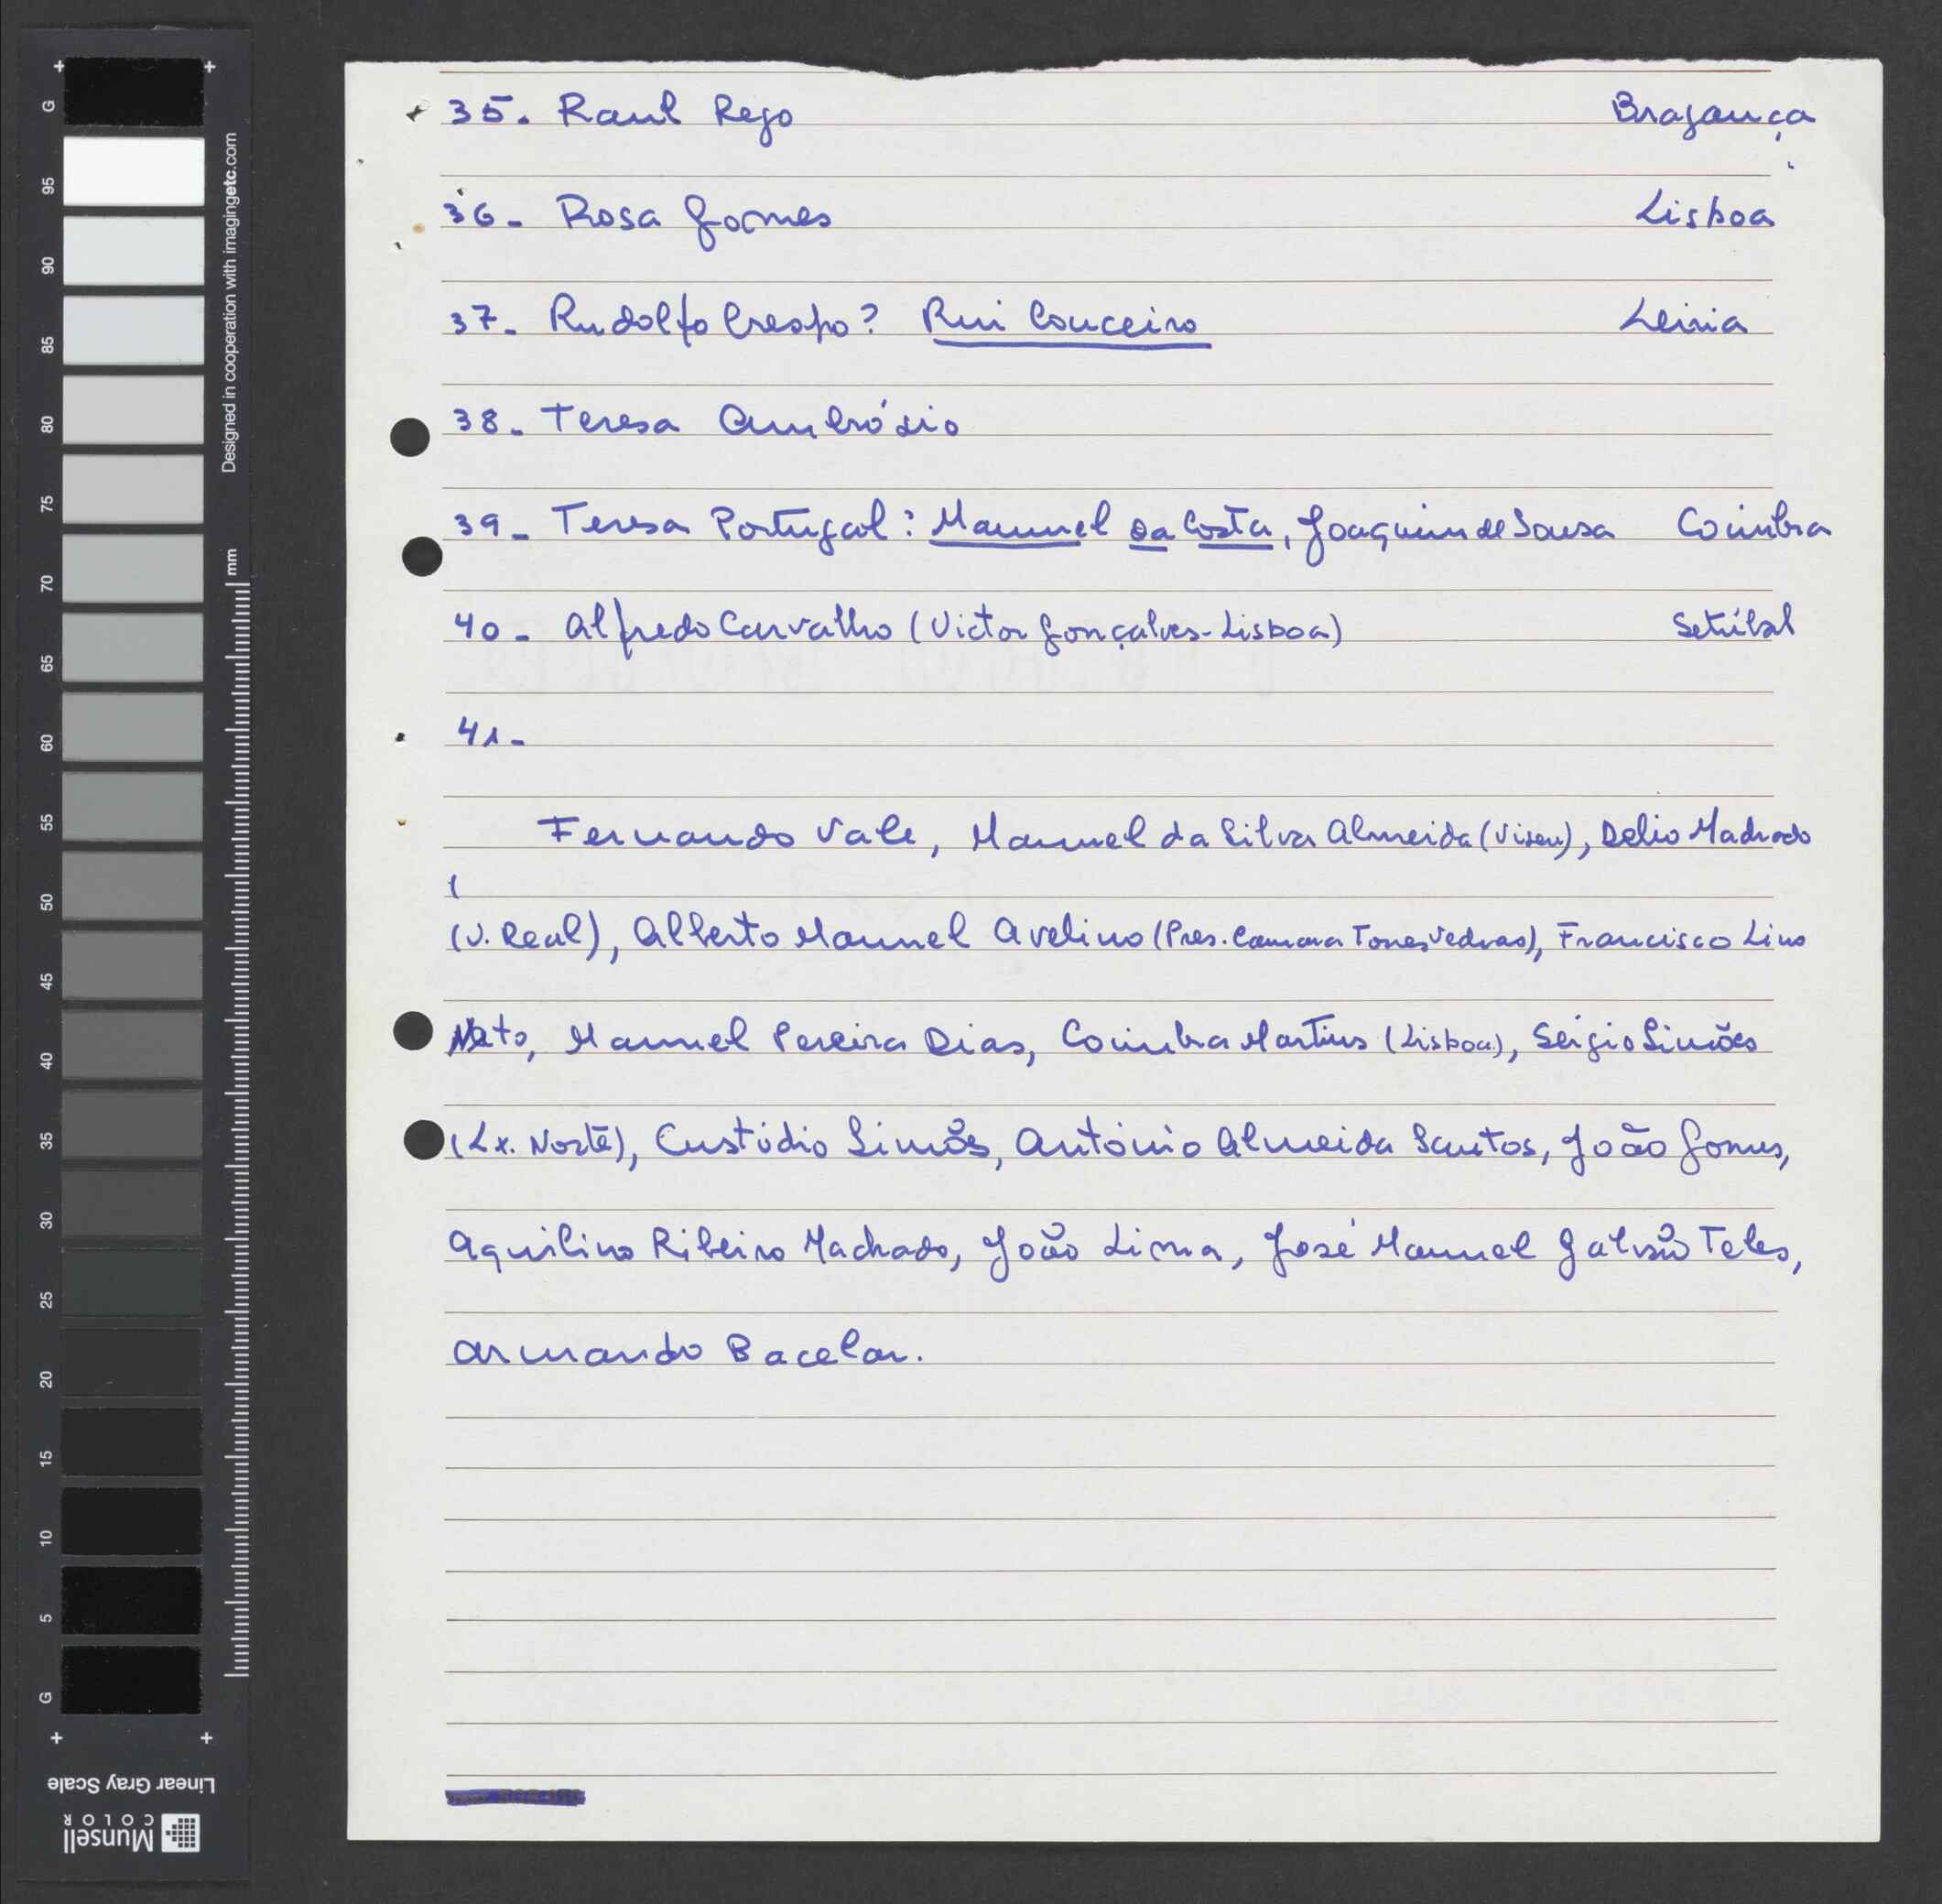 35. Raul Rego Bragança
36- Rosa Gomes Lisboa
37- Rudolfo Crespo? Rui Couceiro Leiria
38- Teresa Ambrósio
39- Teresa Portugal? Manuel da Costa, Joaquim de Sousa Coimbra
40- Alfredo Carvalho (Victor Gonçalves-Lisboa) Setúbal
41-
Fernando Vale, Manuel da Silva Almeida (Viseu), Delio Machado
(V. Real), Alberto Manuel Avelino (Pres. Camara Torres Vedras), Francisco Lino
Neto, Manuel Pereira Dias, Coimbra Martins (Lisboa), Sérgio Simões
(Lx. Norte), Custódio Simões, António Almeida Santos, João Gomes,
Aquilino Ribeiro Machado, João Lima, José Manuel Galvão Teles,
Armando Bacelar.
G
95
90
85
80
75
70
65
60
55
50
45
40
35
30
25
20
15
10
5
G
Designed in cooperation with imagingetc.com
mm
Linear Gray Scale
Munsell
COLOR